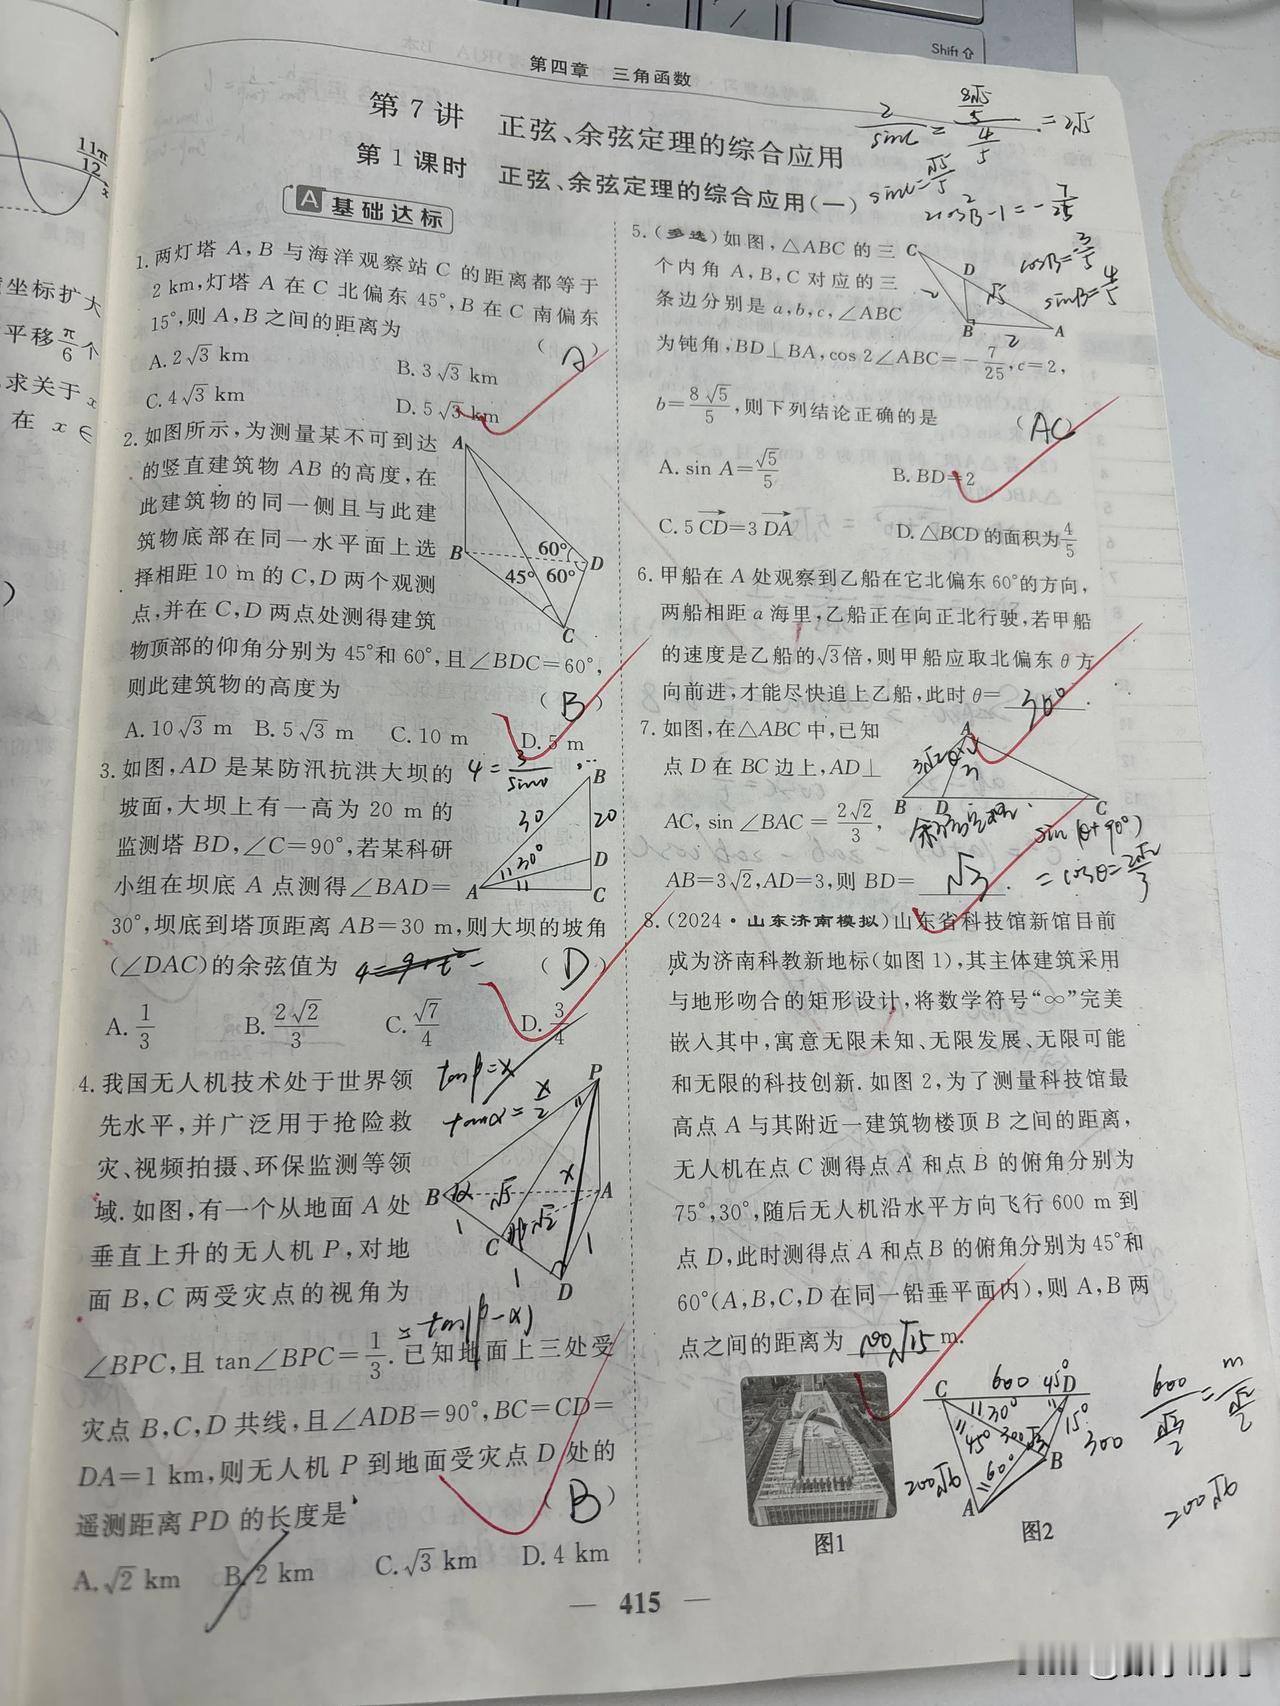 Shift
第四章 三角函数
第7讲 正弦、余弦定理的综合应用
第1课时 正弦、余弦定理的综合应用(一)
A 基础达标
11π/12
坐标扩大
平移π/6个
求关于x
在 x∈
1.两灯塔A,B与海洋观察站C的距离都等于
2 km,灯塔A在C北偏东45°,B在C南偏东
15°,则A,B之间的距离为 (A)
A.2√3 km B.3√3 km
C.4√3 km D.5√3 km
2.如图所示,为测量某不可到达
的竖直建筑物AB的高度,在
此建筑物的同一侧且与此建
筑物底部在同一水平面上选
择相距10 m的C,D两个观测
点,并在C,D两点处测得建筑
物顶部的仰角分别为45°和60°,且∠BDC=60°,
则此建筑物的高度为 (B)
A.10√3 m B.5√3 m C.10 m D.5 m
A
B
60°
D
45° 60°
C
3.如图,AD是某防汛抗洪大坝的
坡面,大坝上有一高为20 m的
监测塔BD,∠C=90°,若某科研
小组在坝底A点测得∠BAD=
30°,坝底到塔顶距离AB=30 m,则大坝的坡角
(∠DAC)的余弦值为 (D)
A.1/3 B.2√2/3 C.√7/4 D.3/4
4=3/sinθ
B
30
20
30°
D
A
C
4.我国无人机技术处于世界领
先水平,并广泛用于抢险救
灾、视频拍摄、环保监测等领
域.如图,有一个从地面A处
垂直上升的无人机P,对地
面B,C两受灾点的视角为
∠BPC,且tan∠BPC=1/3.已知地面上三处受
灾点B,C,D共线,且∠ADB=90°,BC=CD=
DA=1 km,则无人机P到地面受灾点D处的
遥测距离PD的长度是 (B)
A.√2 km B.2 km C.√3 km D.4 km
tanβ=x
tanα=x/2
=tan(β-α)
P
B α √5 x A
1 C β √2
1 1
D
2/sinC=(8√5/5)/(4/5)=2√5
sinC=√5/5
2cos²B-1=-7/25
cosB=3/5
sinB=4/5
5.(多选)如图,△ABC的三
个内角A,B,C对应的三
条边分别是a,b,c,∠ABC
为钝角,BD⊥BA,cos 2∠ABC=-7/25,c=2,
b=8√5/5,则下列结论正确的是 (AC)
A.sin A=√5/5 B.BD=2
C.5CD=3DA D.△BCD的面积为4/5
C
D
2 √5
B 2 A
6.甲船在A处观察到乙船在它北偏东60°的方向,
两船相距a海里,乙船正在向正北行驶,若甲船
的速度是乙船的√3倍,则甲船应取北偏东θ方
向前进,才能尽快追上乙船,此时θ=30°.
7.如图,在△ABC中,已知
点D在BC边上,AD⊥
AC,sin∠BAC=2√2/3,
AB=3√2,AD=3,则BD=√3.
A
3√2 θ 3
B D C
余弦定理.
sin(θ+90°)
=cosθ=2√2/3
8.(2024·山东济南模拟)山东省科技馆新馆目前
成为济南科教新地标(如图1),其主体建筑采用
与地形吻合的矩形设计,将数学符号“∞”完美
嵌入其中,寓意无限未知、无限发展、无限可能
和无限的科技创新.如图2,为了测量科技馆最
高点A与其附近一建筑物楼顶B之间的距离,
无人机在点C测得点A和点B的俯角分别为
75°,30°,随后无人机沿水平方向飞行600 m到
点D,此时测得点A和点B的俯角分别为45°和
60°(A,B,C,D在同一铅垂平面内),则A,B两
点之间的距离为 100√15 m.
C 600 45° D
30° 15°
45° 300√3 300
200√6 60° B
A
600/(√3/2)=m/(√2/2)
200√6
图1
图2
— 415 —